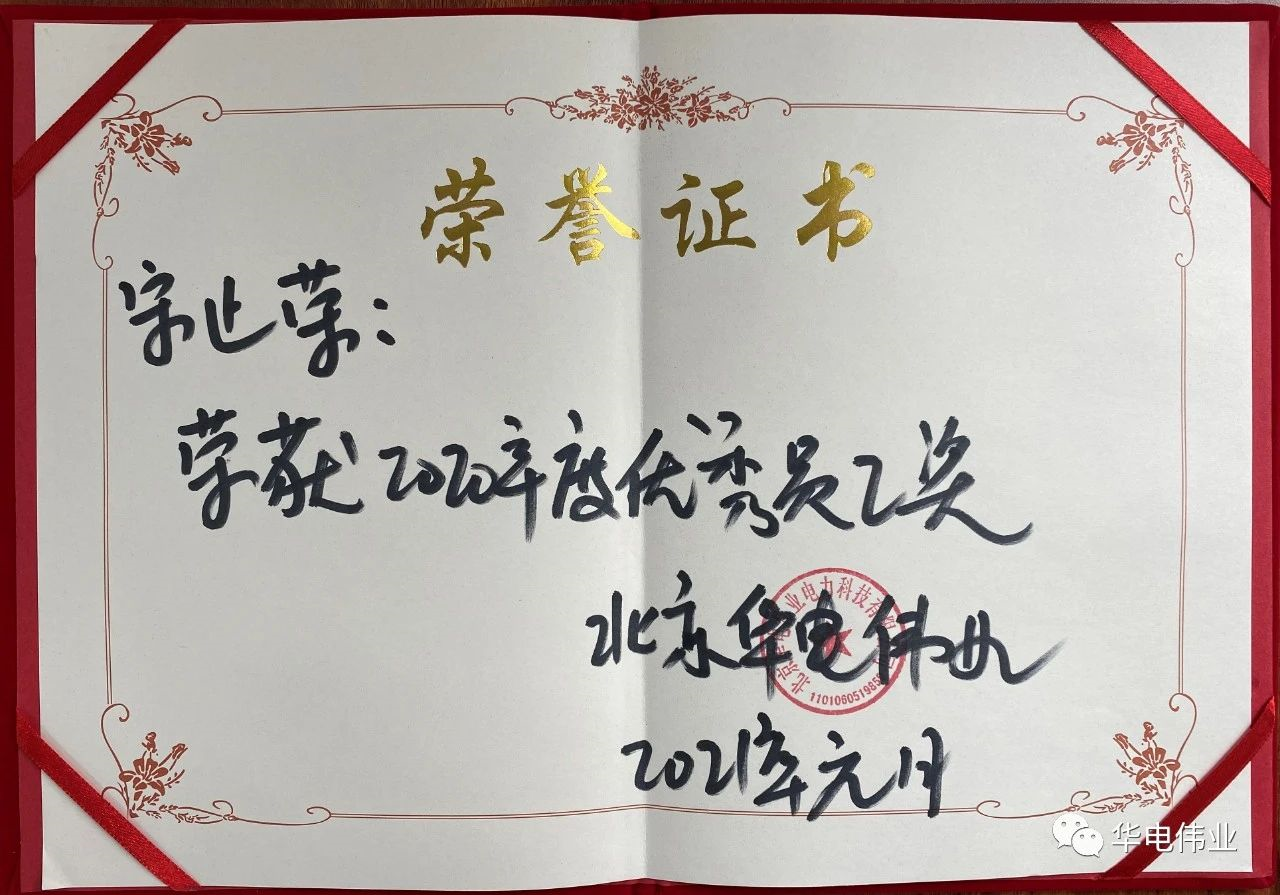 荣誉证书
宋止荣：
荣获2020年度优秀员工奖
北京华电伟业
北京华电伟业电力科技有限公司
2021年元月
华电伟业